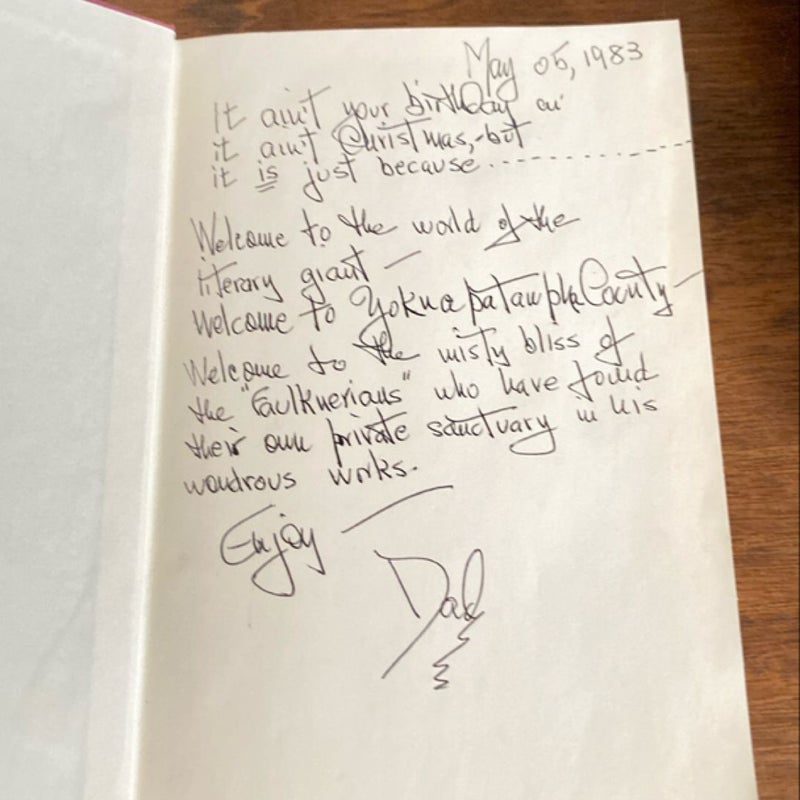 May 05, 1983
It ain't your birthday an'
it ain't Christmas, - but
it is just because..................
Welcome to the world of the
literary giant —
Welcome to Yoknapatawpha County —
Welcome to the misty bliss of
the "Faulknerians" who have found
their own private sanctuary in his
wondrous works.
Enjoy —
Dad